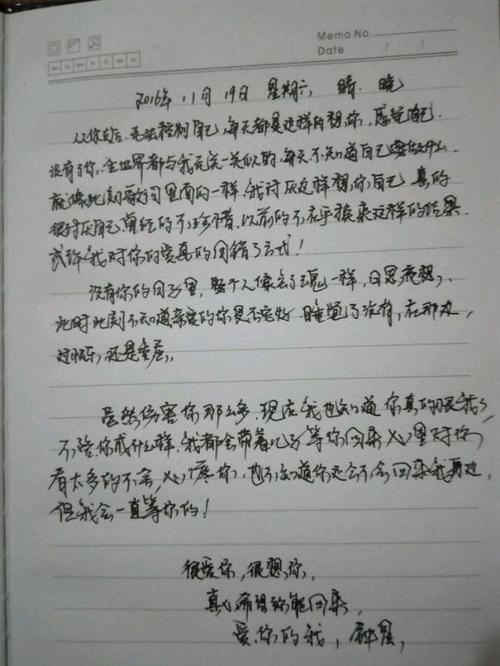 Memo No.
Date / /
Mo Tu We Th Fr Sa Su
2016年11月19日 星期六 晴 晚
从你走后,无法控制自己,每天都是这样的想你,感觉自己
没有了你,全世界都与我无关一类似的,每天不知道自己要做什么
就像此刻歌词里面的一样 我讨厌这样想你自己 真的
很讨厌自己曾经的不珍惜,以前的不在乎换来这样的结果
或许我对你的爱真的用错了方式!
没有你的日子里,整个人像丢了魂一样,日思夜想,
此时此刻不知道亲爱的你是否安好 睡觉了没有,在那边
过快乐,还是
虽然伤害你那么多,现在我也知道你真的恨我了
不管你成什么样,我都会带着儿子等你回来 心里对你
有太多的不舍 心疼你,也不知道你还会不会回来我身边,
但我会一直等你的!
很爱你,很想你,
真心希望你能回来,
爱你的我,